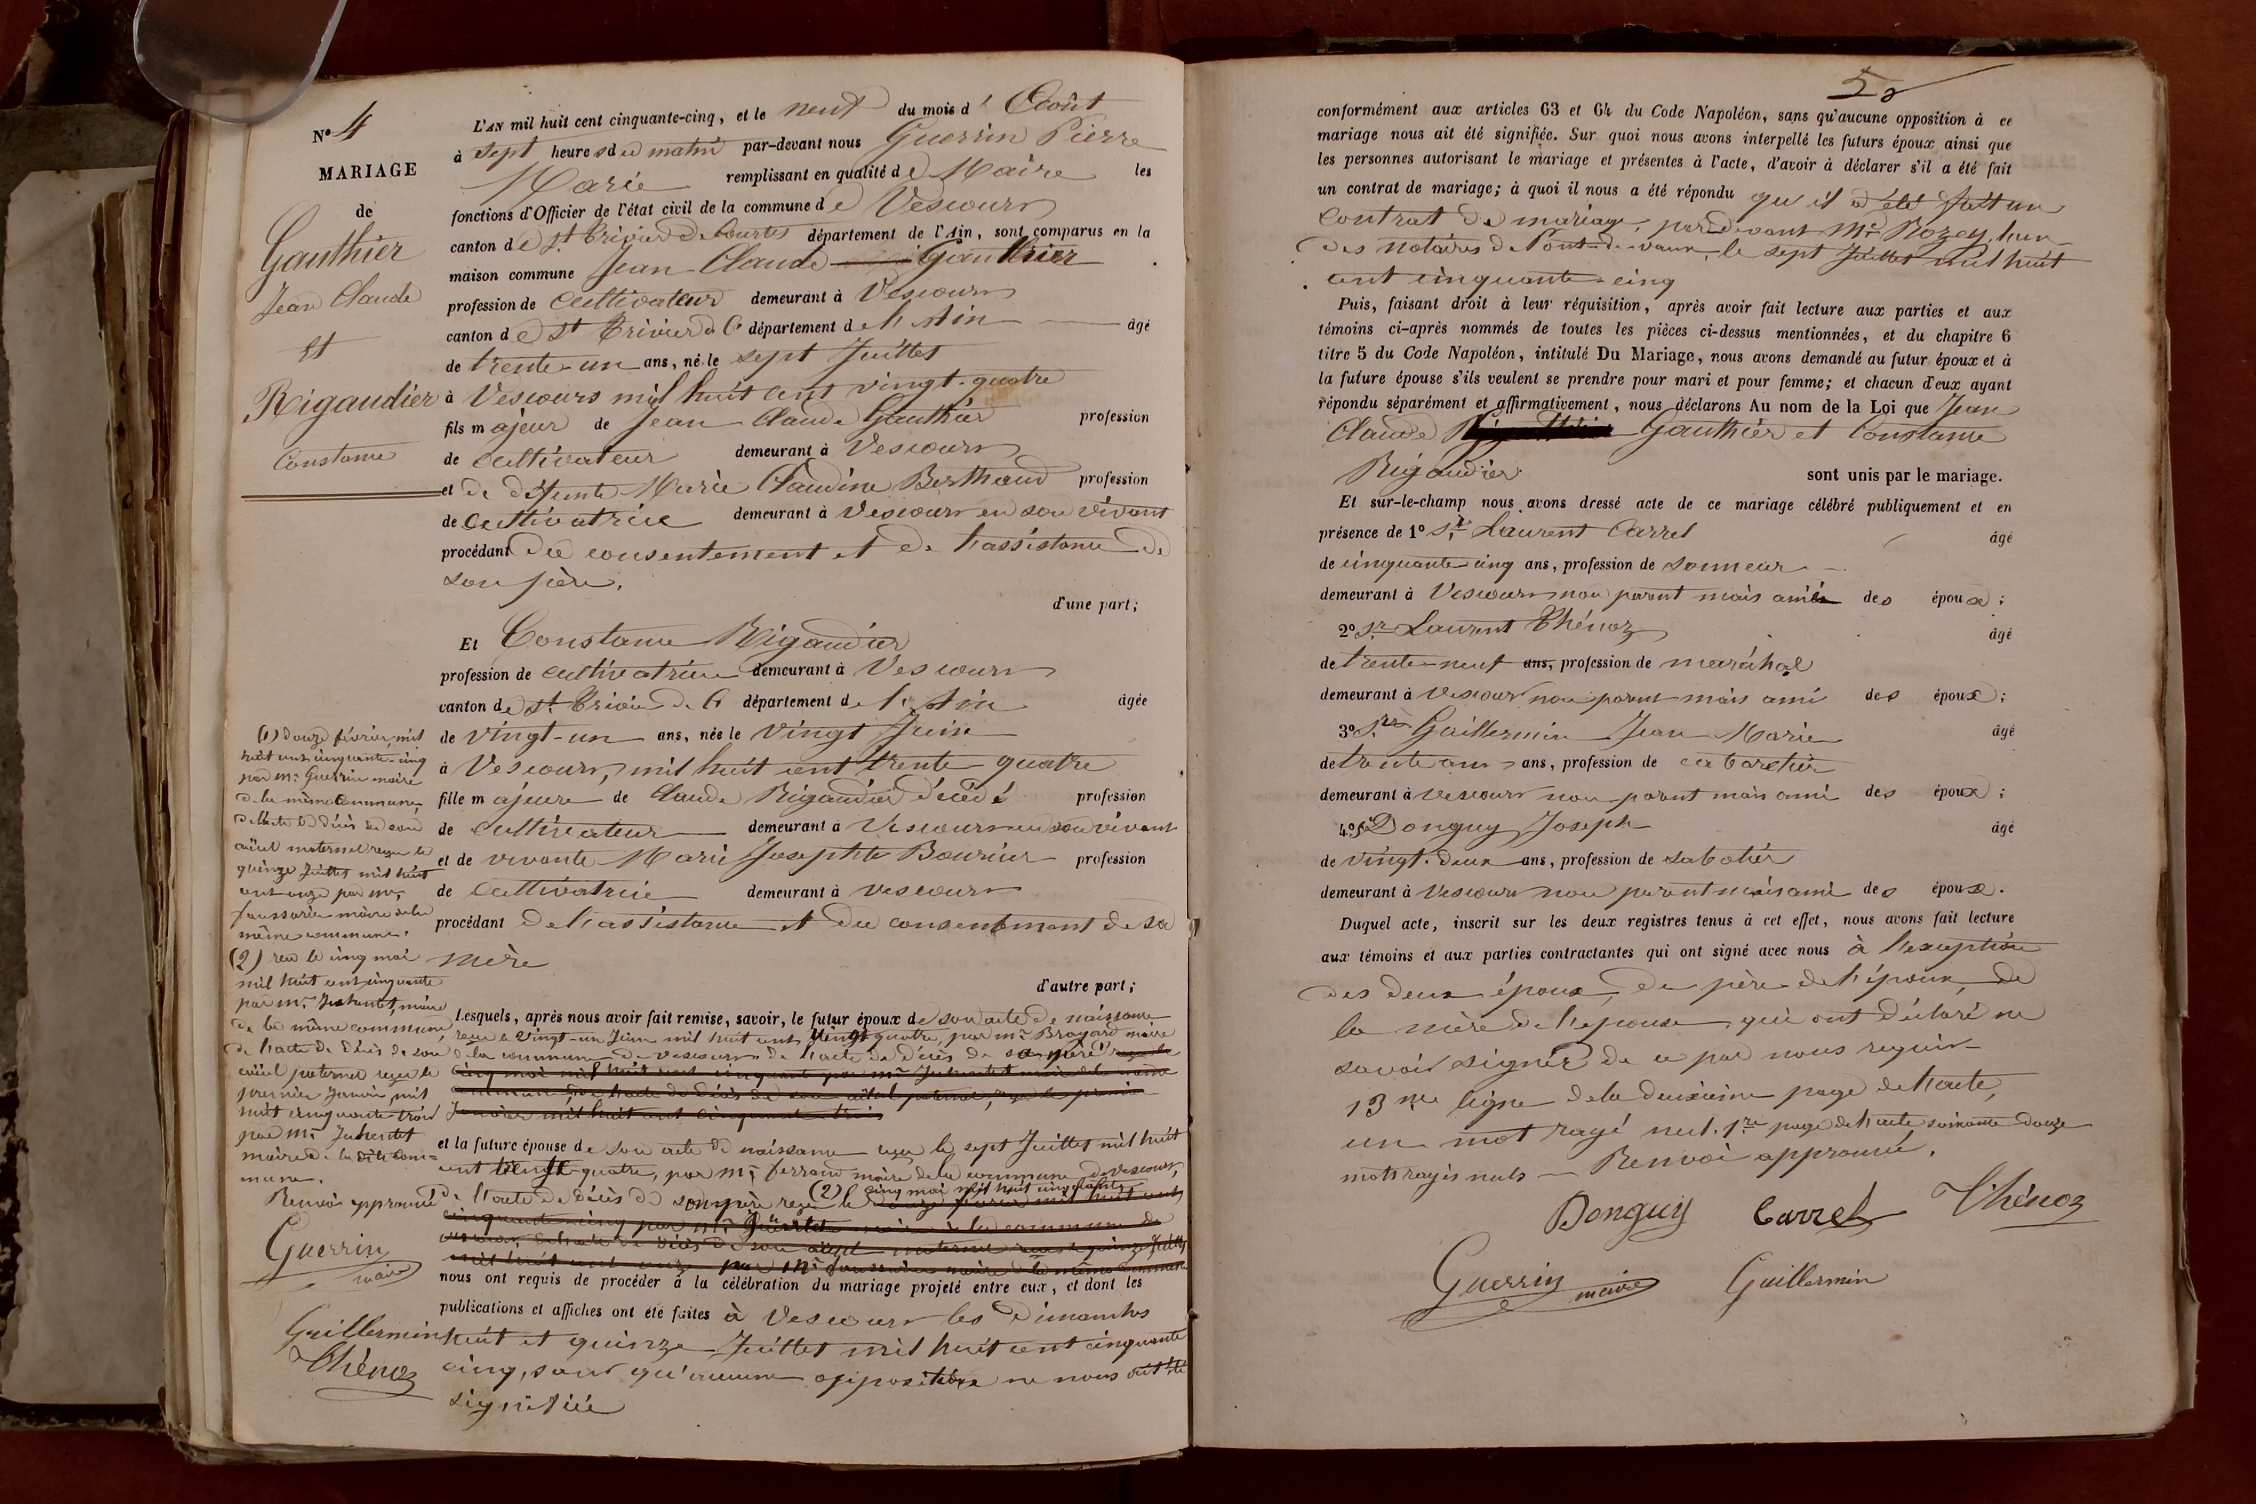 N° 4
MARIAGE
de
Gauthier
Jean Claude
et
Rigaudier
Constance
L'AN mil huit cent cinquante-cinq, et le neuf du mois d' Août
à sept heures du matin par-devant nous Guerrin Pierre
Marie remplissant en qualité de Maire les
fonctions d'Officier de l'état civil de la commune de Vescours
canton de St Trivier de Courtes département de l'Ain, sont comparus en la
maison commune Jean-Claude Gauthier
profession de cultivateur demeurant à Vescours
canton de St Trivier de C département de l'Ain âgé
de trente-un ans, né le sept Juillet
à Vescours mil huit cent vingt-quatre
fils majeur de Jean Claude Gauthier profession
de cultivateur demeurant à Vescours
et de défunte Marie Claudine Berthaud profession
de cultivatrice demeurant à Vescours en son vivant
procédant du consentement et de l'assistance de
son père.
d'une part;
Et Constance Rigaudier
profession de cultivatrice demeurant à Vescours
canton de St Trivier de C département de l'Ain âgée
de vingt-un ans, née le vingt Juin
à Vescours, mil huit cent trente quatre
fille majeure de Claude Rigaudier décédé profession
de cultivateur demeurant à Vescours en son vivant
et de vivante Marie Josephte Bourier profession
de cultivatrice demeurant à Vescours
procédant de l'assistance et du consentement de sa
mère
d'autre part;
Lesquels, après nous avoir fait remise, savoir, le futur époux de son acte de naissance
reçu le vingt-un Juin mil huit cent vingt quatre, par Mr Broyard maire
de la commune de Vescours de l'acte de décès de sa mère
cinq mai mil huit cent cinquante par Mr maire de la même
commune, de l'acte de décès de son aïeul paternel, reçu le premier
Janvier mil huit cent cinquante trois
et la future épouse de son acte de naissance reçu le sept Juillet mil huit
cent trente-quatre, par Mr Ferrand maire de la commune de Vescours,
de l'acte de décès de son père reçu le (2) cinq mai mil huit cinquante
douze février mil huit cent
cinquante-cinq par Mr maire de la commune de
Vescours, de l'acte de décès de son aïeul maternel reçu le quinze Juillet
mil huit cent onze par Mr maire de la même commune
nous ont requis de procéder à la célébration du mariage projeté entre eux, et dont les
publications et affiches ont été faites à Vescours les Dimanches
huit et quinze Juillet mil huit cent cinquante
cinq, sans qu'aucune opposition ne nous ait été
signifiée
(1) Douze février mil
huit cent cinquante-cinq
par Mr Guerrin maire
de la même commune,
de l'acte de décès de son
aïeul maternel reçu le
quinze Juillet mil huit
cent onze par Mr
maire de la
même commune.
(2) reçu le cinq mai
mil huit cent cinquante
par Mr maire
de la même commune,
de l'acte de décès de son
aïeul paternel reçu le
premier Janvier mil
huit cinquante trois
par Mr
maire de la dite com=
mune.
Renvoi approuvé
Guerrin
maire
Guillermin
Thénoz
5
conformément aux articles 63 et 64 du Code Napoléon, sans qu'aucune opposition à ce
mariage nous ait été signifiée. Sur quoi nous avons interpellé les futurs époux ainsi que
les personnes autorisant le mariage et présentes à l'acte, d'avoir à déclarer s'il a été fait
un contrat de mariage; à quoi il nous a été répondu qu'il a été fait un
contrat de mariage, par devant Mr Rozey, l'un
des notaires de Pont-de-vaux, le sept Juillet mil huit
cent cinquante-cinq
Puis, faisant droit à leur réquisition, après avoir fait lecture aux parties et aux
témoins ci-après nommés de toutes les pièces ci-dessus mentionnées, et du chapitre 6
titre 5 du Code Napoléon, intitulé Du Mariage, nous avons demandé au futur époux et à
la future épouse s'ils veulent se prendre pour mari et pour femme; et chacun d'eux ayant
répondu séparément et affirmativement, nous déclarons Au nom de la Loi que Jean
Claude Gauthier et Constance
Rigaudier sont unis par le mariage.
Et sur-le-champ nous avons dressé acte de ce mariage célébré publiquement et en
présence de 1° Sr Laurent Carrel âgé
de cinquante cinq ans, profession de sonneur
demeurant à Vescours non parent mais ami des époux;
2° Sr Laurent Thénoz âgé
de trente-neuf ans, profession de maréchal
demeurant à Vescours non parent mais ami des époux;
3° Sr Guillermin Jean Marie âgé
de trente ans, profession de cabaretier
demeurant à Vescours non parent mais ami des époux;
4° Sr Donguy Joseph âgé
de vingt-deux ans, profession de sabotier
demeurant à Vescours non parent mais ami des époux.
Duquel acte, inscrit sur les deux registres tenus à cet effet, nous avons fait lecture
aux témoins et aux parties contractantes qui ont signé avec nous à l'exception
des deux époux, du père de l'époux, de
la mère de l'épouse, qui ont déclaré ne
savoir signer de ce par nous requis
13me ligne de la deuxième page de l'acte,
un mot rayé nul. 1re page de l'acte soixante douze
mots rayés nuls — Renvoi approuvé.
Donguy Carrel Thénoz
Guerrin maire Guillermin